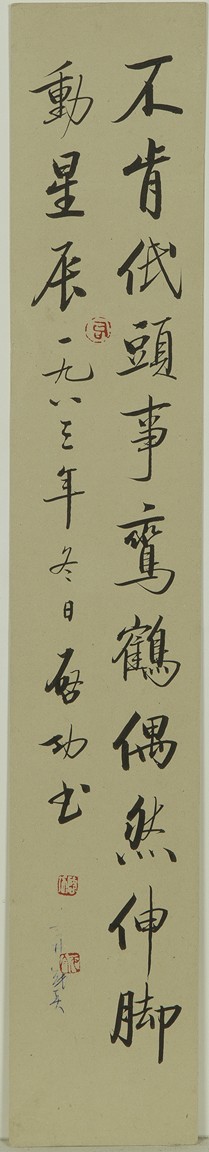 不肯低頭事鸞鶴偶然伸脚
動星辰一九八三年冬日啓功书